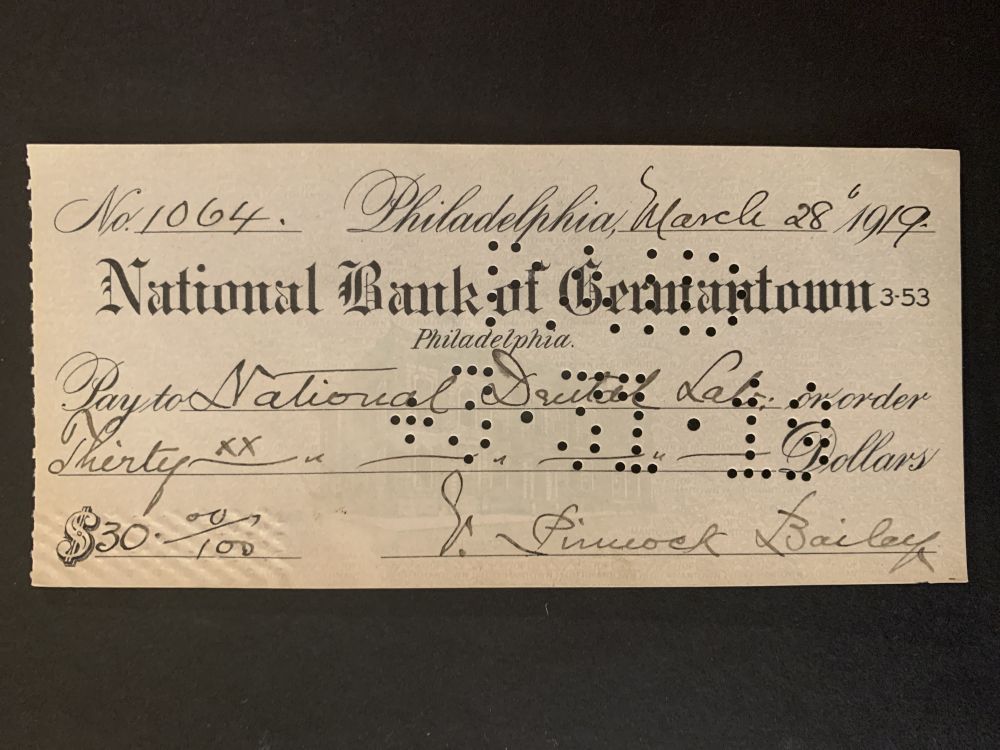 No. 1064. Philadelphia, March 28" 1919.
National Bank of Germantown 3-53
Philadelphia.
Pay to National Dental Lab. or order
Thirty xx " " " Dollars
$30. 00/100 Bailey
PAID